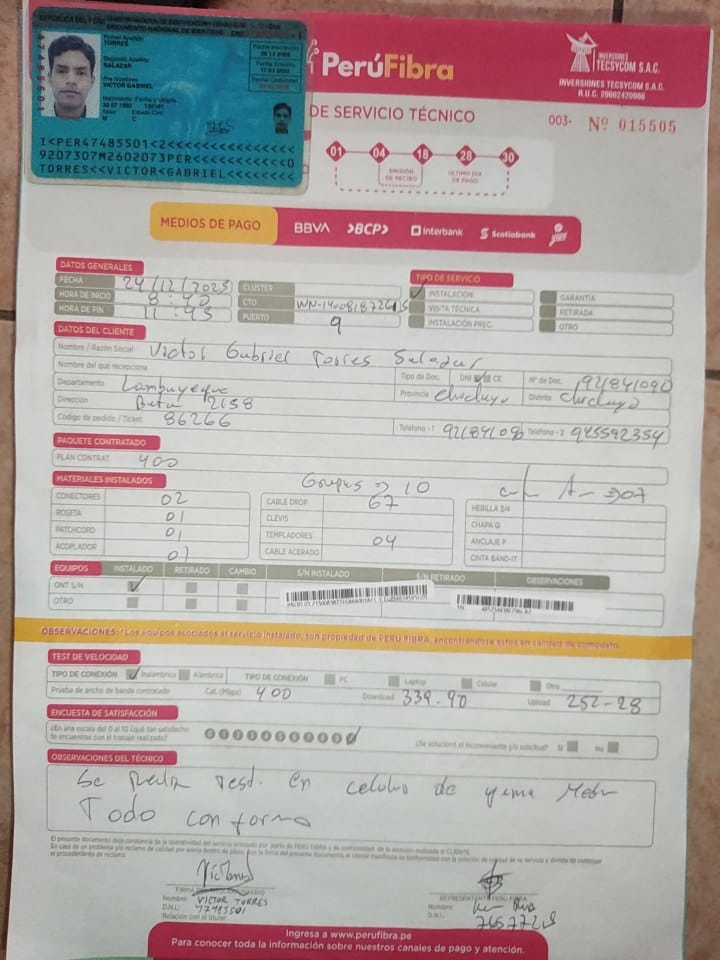 REPÚBLICA DEL PERÚ
DOCUMENTO NACIONAL DE IDENTIDAD
Primer Apellido
TORRES
Segundo Apellido
SALAZAR
Pre Nombres
VICTOR GABRIEL
Nacimiento: Fecha y Ubigeo
30 07 1992
Sexo Estado Civil
M
Fecha Inscripción
Fecha Emisión
Fecha Caducidad
I<PER47485501<2<<<<<<<<<<<<<<<
9207307M2602073PER<<<<<<<<<<<0
TORRES<<VICTOR<GABRIEL<<<<<<<<
PerúFibra
INVERSIONES
TECSYCOM S.A.C.
INVERSIONES TECSYCOM S.A.C.
R.U.C.
DE SERVICIO TÉCNICO
003- Nº 015505
01 04 18 28 30
EMISIÓN DE RECIBO
ÚLTIMO DÍA DE PAGO
MEDIOS DE PAGO BBVA >BCP> Interbank Scotiabank
DATOS GENERALES
TIPO DE SERVICIO
FECHA 24/12/2025 CLUSTER
INSTALACIÓN GARANTÍA
HORA DE INICIO 8:40 CTO
VISITA TÉCNICA RETIRADA
HORA DE FIN 11:45 PUERTO 9
INSTALACIÓN PREC. OTRO
DATOS DEL CLIENTE
Nombre / Razón Social Victor Gabriel Torres Salazar
Nombre del que recepciona
Tipo de Doc. DNI CE Nº de Doc. 921841090
Departamento Lambayeque Provincia Chiclayo Distrito Chiclayo
Dirección 2158
Código de pedido / Ticket 86266 Teléfono - 1 921841090 Teléfono - 2 945592354
PAQUETE CONTRATADO
PLAN CONTRAT 400
MATERIALES INSTALADOS Grapas => 10
CONECTORES 02 CABLE DROP 67 HEBILLA 3/4
ROSETA 01 CLEVIS CHAPA Q
PATCHCORD 01 TEMPLADORES 04 ANCLAJE P
ACOPLADOR 01 CABLE ACERADO CINTA BAND-IT
EQUIPOS INSTALADO RETIRADO CAMBIO S/N INSTALADO S/N RETIRADO OBSERVACIONES
ONT S/N
OTRO
OBSERVACIONES: *Los equipos asociados al servicio instalado, son propiedad de PERÚ FIBRA, encontrándose estos en calidad de comodato.
TEST DE VELOCIDAD
TIPO DE CONEXIÓN Inalámbrico Alámbrica TIPO DE CONEXIÓN PC Laptop Celular Otro
Prueba de ancho de banda contratado Cat. (Mbps) 400 Download 339.90 Upload 252-28
ENCUESTA DE SATISFACCIÓN
¿En una escala del 0 al 10 ¿qué tan satisfecho te encuentras con el trabajo realizado?
0 1 2 3 4 5 6 7 8 9
¿Se solucionó el inconveniente y/o solicitud? Si No
OBSERVACIONES DEL TÉCNICO
Se realiza test. en celular de gama
Todo conforme
FIRMA
Nombre: VICTOR TORRES
D.N.I.: 47485501
Relación con el titular:
REPRESENTANTE PERÚ FIBRA
Nombre:
D.N.I.:
Ingresa a www.perufibra.pe
Para conocer toda la información sobre nuestros canales de pago y atención.